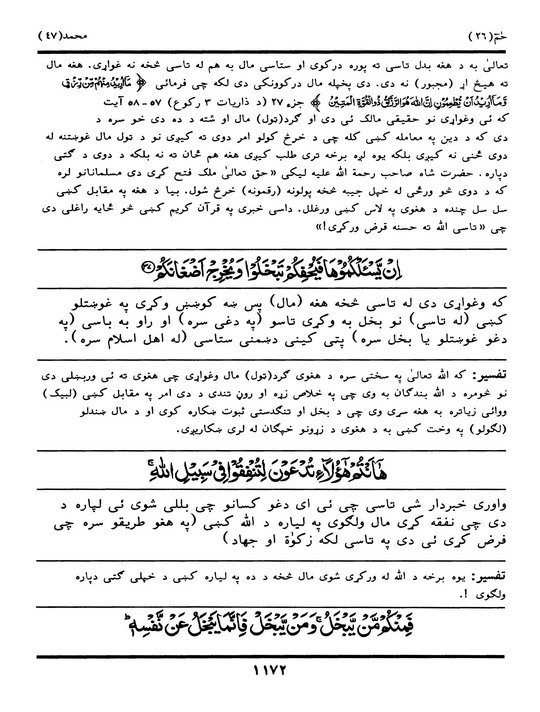 حٰمٓ (٢٦) محمد (٤٧)
تعالیٰ به د هغه بدل تاسی ته پوره درکوی او ستاسی مال به هم له تاسی څخه نه غواړی. هغه مال
ته هیڅ اړ (مجبور) نه دی. دی پخپله مال درکوونکی دی لکه چی فرمائی ﴿ مَآ اُرِیۡدُ مِنۡهُمۡ مِّنۡ رِّزۡقٍ
وَّمَآ اُرِیۡدُ اَنۡ یُّطۡعِمُوۡنِ اِنَّ اللّٰهَ هُوَ الرَّزَّاقُ ذُو الۡقُوَّةِ الۡمَتِیۡنُ ﴾ جزء ٢٧ (د ذاریات ٣ رکوع) ٥٧ – ٥٨ آیت
که ئی وغواړی نو حقیقی مالک ئی دی او ګرد (تول) مال او شته د ده دی خو سره د
دی که د دین په معامله کښی کله چی د خرخ کولو امر دوی ته کیږی نو د تول مال غوښتنه له
دوی څنی نه کیږی بلکه یوه لږه برخه تری طلب کیږی هغه هم ځان ته نه بلکه د دوی د ګتی
دپاره . حضرت شاه صاحب رحمة الله علیه لیکی «حق تعالیٰ ملک فتح کړی دی مسلمانانو لره
که د دوی څو ورځی له خپل جیبه څخه پولونه (رقمونه) خرڅ شول. بیا د هغه په مقابل کښی
سل سل چنده د هغوی په لاس کښی ورغلل. داسی خبری په قرآن کریم کښی څو ځایه راغلی دی
چی «تاسی الله ته حسنه قرض ورکړی!»
اِنۡ یَّسۡـَٔلۡکُمُوۡهَا فَیُحۡفِکُمۡ تَبۡخَلُوۡا وَیُخۡرِجۡ اَضۡغَانَکُمۡ ﴿٣٧﴾
که وغواړی دی له تاسی څخه هغه (مال) پس ښه کوښښ وکړی په غوښتلو
کښی (له تاسی) نو بخل به وکړی تاسو (په دغی سره) او راو به باسی (په
دغو غوښتلو یا بخل سره) پتی کینی دښمنی ستاسی (له اهل اسلام سره).
تفسیر: که الله تعالیٰ په سختی سره د هغوی ګرد (تول) مال وغواړی چی هغوی ته ئی وربښلی دی
نو څومره د الله بندګان به وی چی په خلاص زړه او روڼ تندی د دی امر په مقابل کښی (لبیک)
ووائی زیاتره به هغه سړی وی چی د بخل او تنګدستی ثبوت ښکاره کوی او د مال ښندلو
(لګولو) په وخت کښی به د هغوی د زړونو خپګان له لری ښکاریږی.
هٰۤاَنۡتُمۡ هٰۤؤُلَآءِ تُدۡعَوۡنَ لِتُنۡفِقُوۡا فِیۡ سَبِیۡلِ اللّٰهِ ۚ
واوری خبردار شی تاسی چی ئی ای دغو کسانو چی بللی شوی ئی لپاره د
دی چی نفقه کړی مال ولګوی په لیاره د الله کښی (په هغو طریقو سره چی
فرض کړی ئی دی په تاسی لکه زکوٰة او جهاد)
تفسیر: یوه برخه د الله له ورکړی شوی مال څخه د ده په لیاره کښی د خپلی ګتی دپاره
ولګوی !.
فَمِنۡکُمۡ مَّنۡ یَّبۡخَلُ ۚ وَمَنۡ یَّبۡخَلۡ فَاِنَّمَا یَبۡخَلُ عَنۡ نَّفۡسِهٖ ؕ
١١٧٢